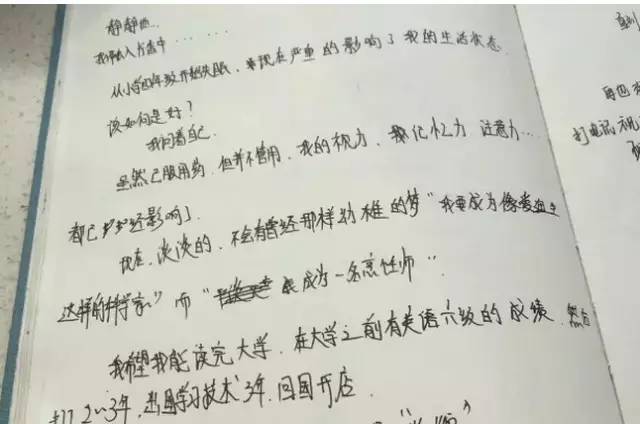 静静地...
我融入片中......
从小学四年级开始失眠，现在严重的影响了我的生活状态.
该如何是好？
我问着自己.
虽然已服用药，但并不管用，我的视力，我记忆力 注意力...
都已经受影响了.
现在，淡淡的，不会有曾经那样幼稚的梦"我要成为像爱迪生
这样的科学家"而" 成为一名烹饪师".
我希望我能读完大学，在大学之前有英语六级的成绩，然后
打2~3年，出国学习技术3年，回国开店.